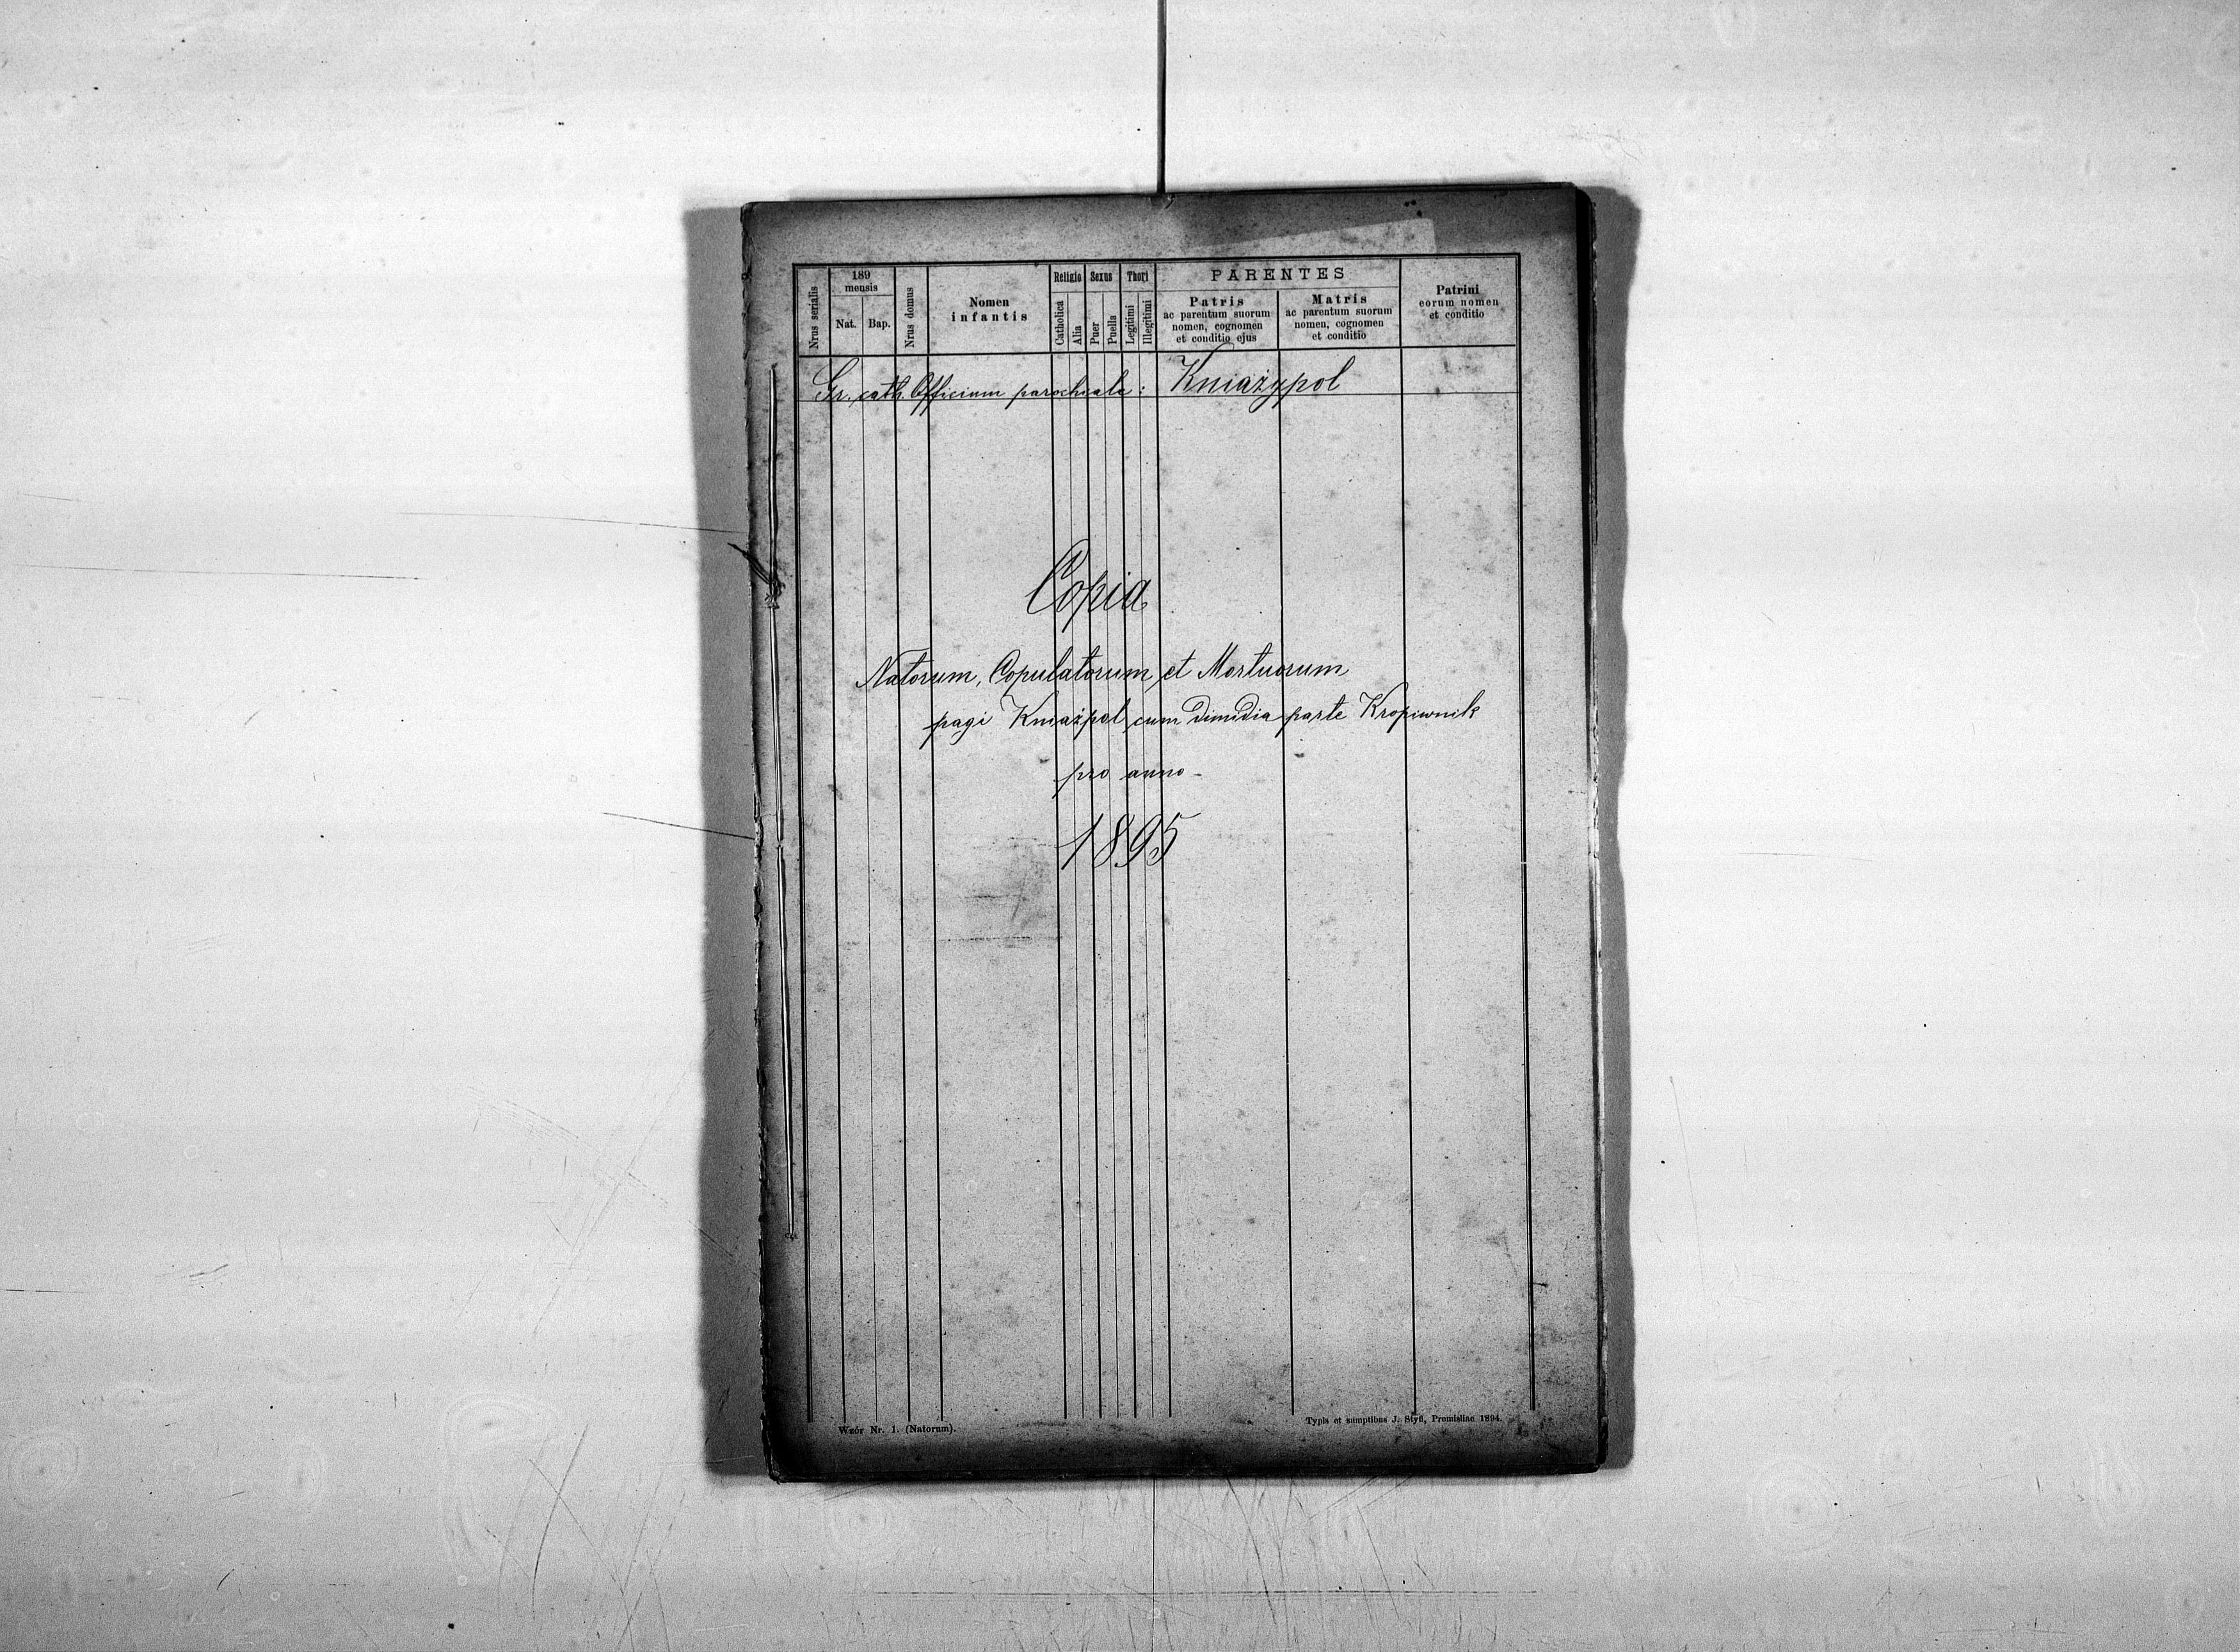 Nrus serialis
189
mensis
Nat.
Bap.
Nrus domus
Nomen
infantis
Religio
Catholica
Alia
Sexus
Puer
Puella
Thori
Legitimi
Illegitimi
PARENTES
Patris
ac parentum suorum
nomen, cognomen
et conditio ejus
Matris
ac parentum suorum
nomen, cognomen
et conditio
Patrini
eorum nomen
et conditio
Gr. cath. Officium parochiale: Kniażypol
Copia
Natorum, Copulatorum et Mortuorum
pagi Kniażpol cum dimidia parte Kropiwnik
pro anno
1895
Wzór Nr. 1. (Natorum).
Typis et sumptibus J. Styfi, Premisliae 1894.